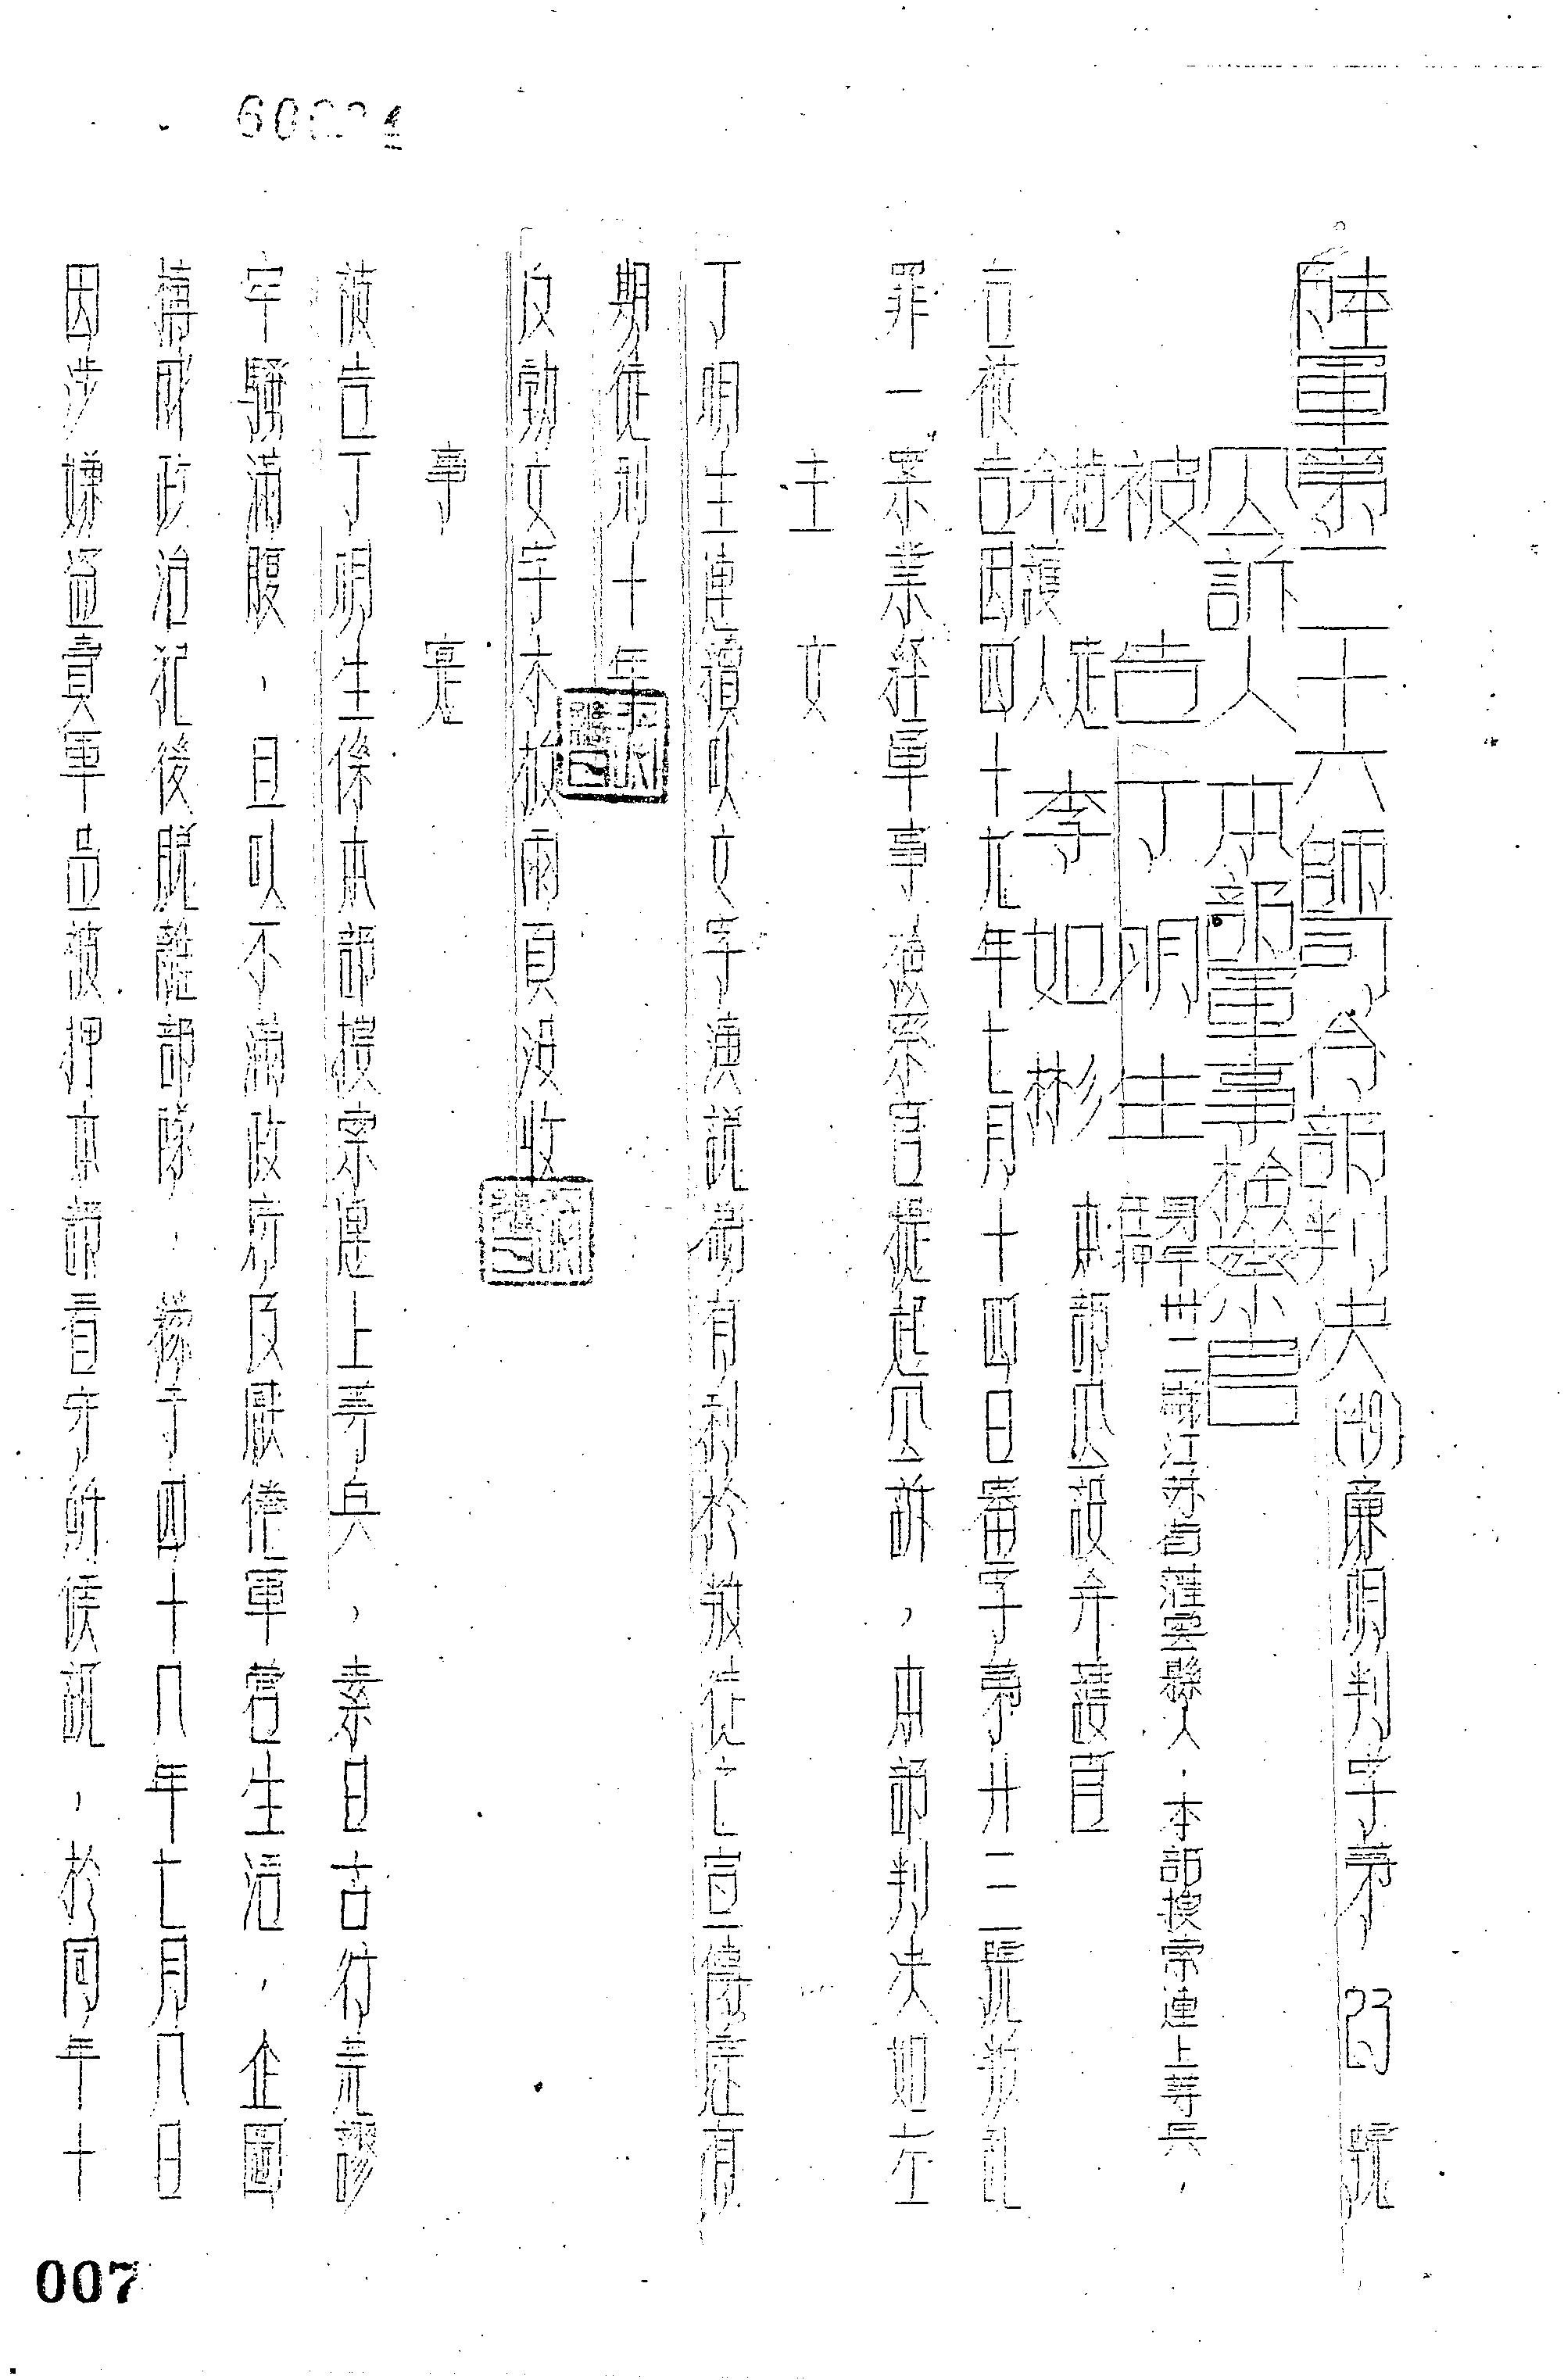 陸軍第二十六師司令部判決(49)廉翔判字第　號
公訴人　本部軍事檢察官
被告　丁明生　男年卅二歲江蘇省灌雲縣人．本部搜索連上等兵，
在押
指定
辯護人　李如彬　本部公設辯護官
右被告因四十九年七月十四日審字第廿二號叛亂
罪一案業經軍事檢察官提起公訴，本部判決如左
主　文
丁明生連續以文字演說為有利於叛徒之宣傳處有
期徒刑十年
反動文字木板兩頁沒收
事　實
被告丁明生係本部搜索連上等兵，素日言行荒謬
牢騷滿腹，且以不滿政府及厭倦軍營生活，企圖
構成政治犯後脫離部隊．緣于四十八年七月八日
因涉嫌盜賣軍品被押本部看守所候訊，於同年十
007